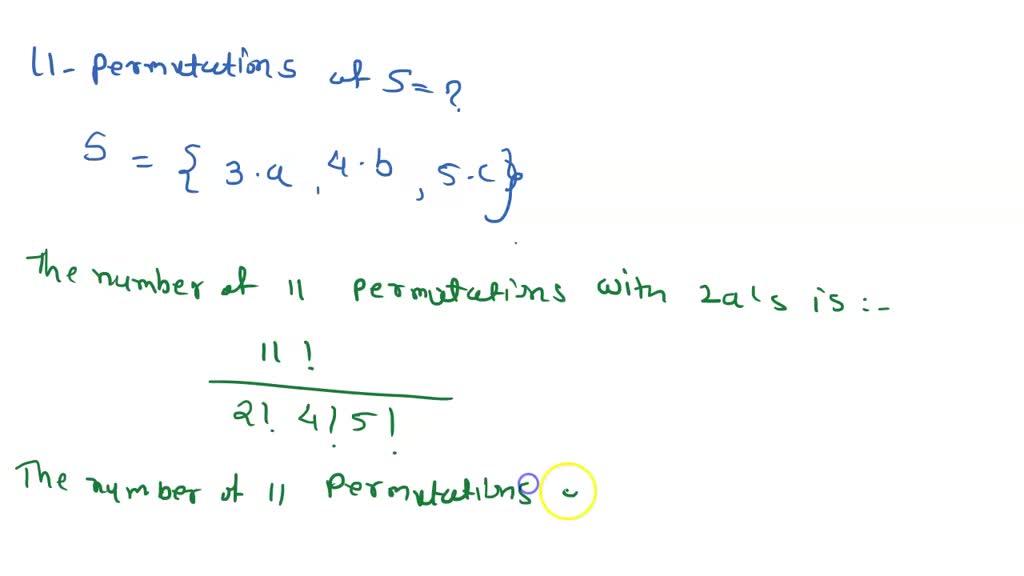 11- permutations of S = ?
S = { 3·a , 4·b , 5·c }
The number of 11 permutations with 2a's is :-
11 !
2! 4! 5!
The number of 11 permutations